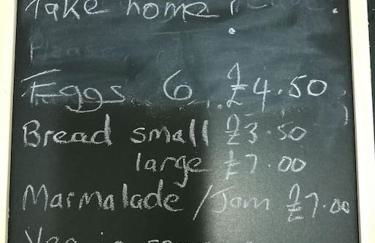 Take home
Please
Eggs 6 £4.50
Bread small £3.50
large £7.00
Marmalade / Jam £7.00